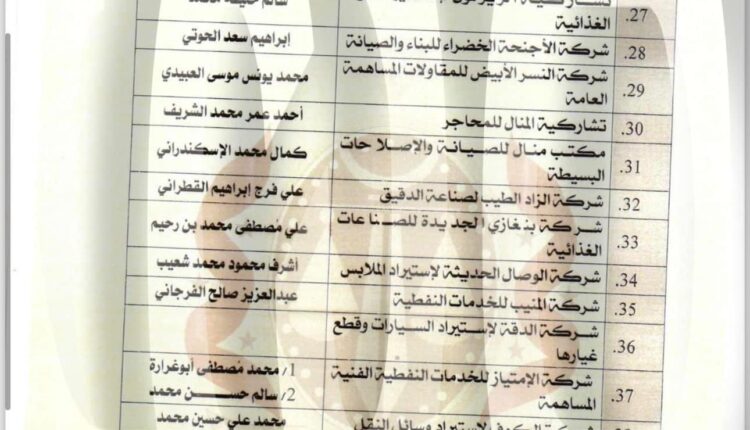 سالم خليفة محمد
27. الغذائية
28. شركة الأجنحة الخضراء للبناء والصيانة إبراهيم سعد الحوتي
29. شركة النسر الأبيض للمقاولات المساهمة محمد يونس موسى العبيدي
العامة
30. تشاركية المنال للمحاجر أحمد عمر محمد الشريف
31. مكتب منال للصيانة والإصلاحات كمال محمد الإسكندراني
البسيطة
32. شركة الزاد الطيب لصناعة الدقيق علي فرج إبراهيم القطراني
33. شركة بنغازي الجديدة للصناعات علي مصطفى محمد بن رحيم
الغذائية
34. شركة الوصال الحديثة لإستيراد الملابس أشرف محمود محمد شعيب
35. شركة المنيب للخدمات النفطية عبدالعزيز صالح الفرجاني
36. شركة الدقة لإستيراد السيارات وقطع
غيارها
37. شركة الإمتياز للخدمات النفطية الفنية 1/ محمد مصطفى أبوغرارة
المساهمة 2/ سالم حسن محمد
لإستيراد وسائل النقل محمد علي حسين محمد